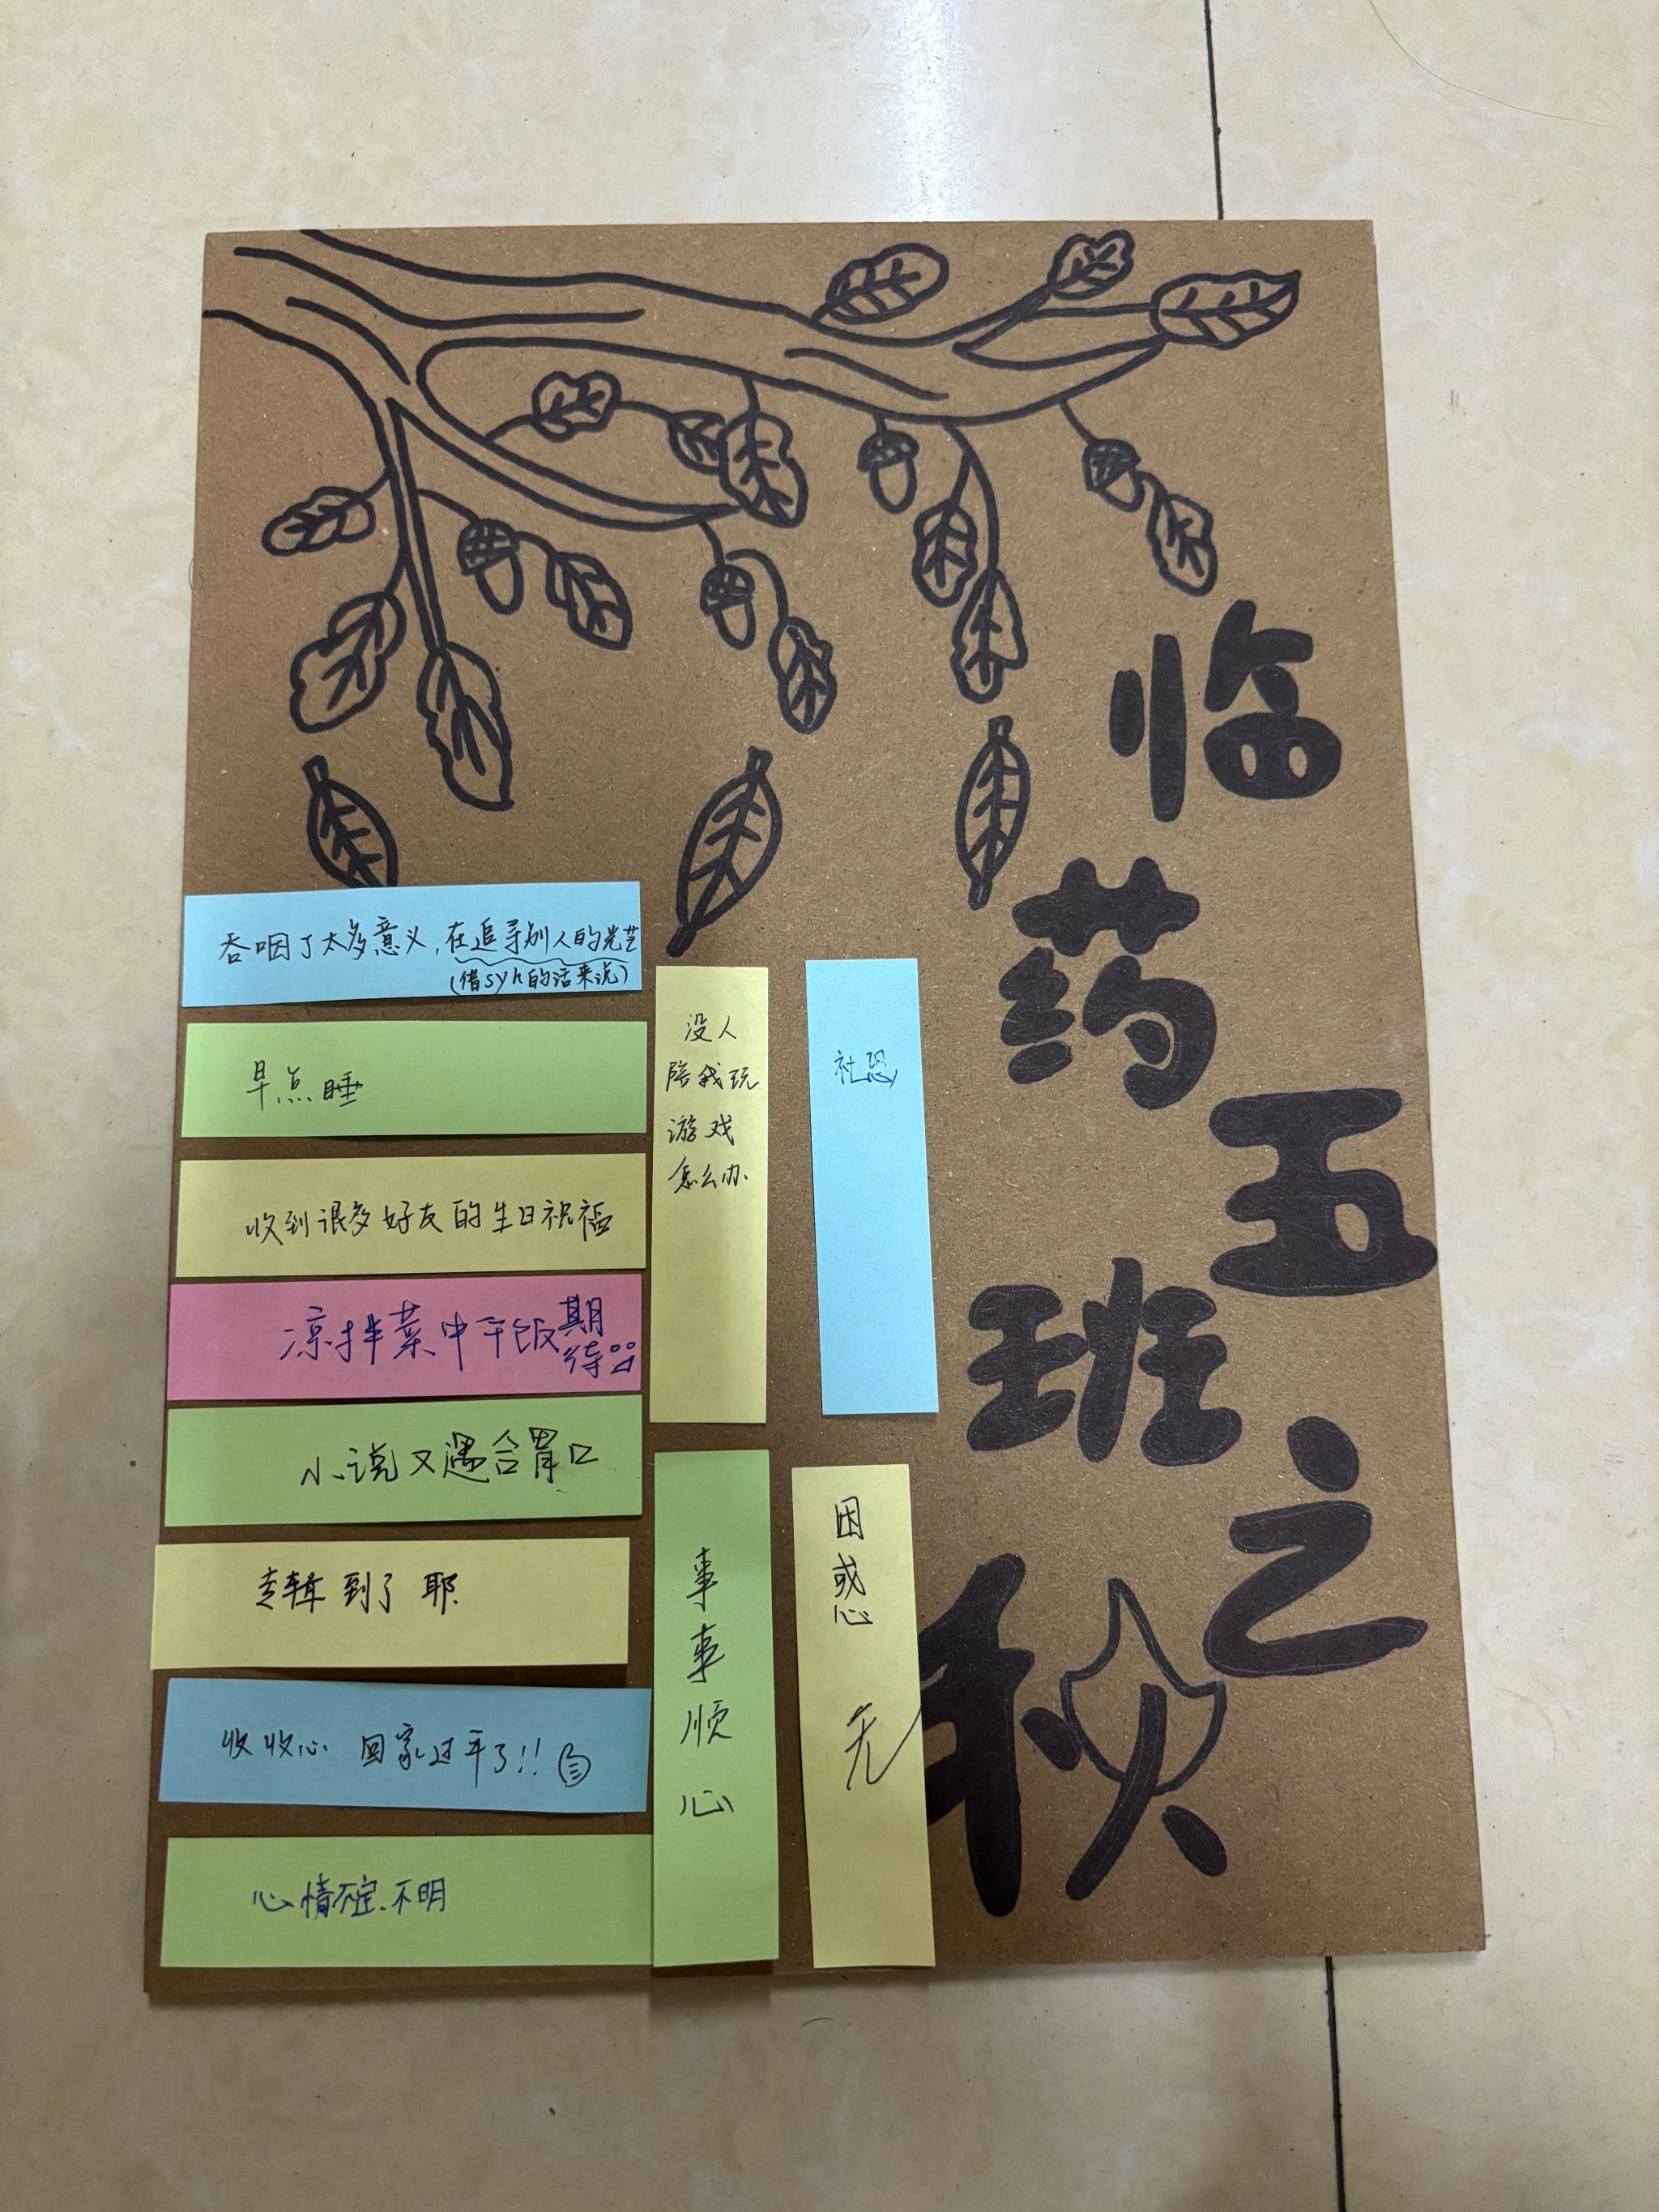 临
药
五
班
之
秋
吞咽了太多意义,在追寻别人的光芒
(借syh的话来说)
早点睡
收到很多好友的生日祝福
凉拌菜中午饭期
待
小说又遇合胃口
专辑到了 耶
收收心 回家过年了!!
心情不定、不明
没人
陪我玩
游戏
怎么办
社恐
事
事
顺
心
困
惑
无